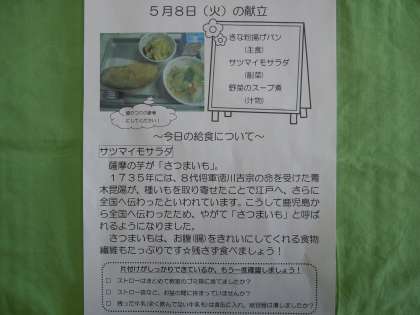 5月8日(火)の献立
きな粉揚げパン
(主食)
サツマイモサラダ
(副菜)
野菜のスープ煮
(汁物)
盛りつけの参考
にしてください!
～今日の給食について～
サツマイモサラダ
薩摩の芋が「さつまいも」。
1735年には、8代将軍徳川吉宗の命を受けた青
木昆陽が、種いもを取り寄せたことで江戸へ、さらに
全国へ伝わったといわれています。こうして鹿児島か
ら全国へ伝わったため、やがて「さつまいも」と呼ば
れるようになりました。
さつまいもは、お腹(腸)をきれいにしてくれる食物
繊維もたっぷりです☆残さず食べましょう!
片付けがしっかりできているか、もう一度確認しましょう!
□ ストローはまとめて教室のゴミ箱に捨てましたか?
□ ストロー袋など、お盆の間に挟まっていませんか?
□ 残った牛乳(全く飲んでない牛乳も)は食缶に入れ、紙容器は潰しましたか?